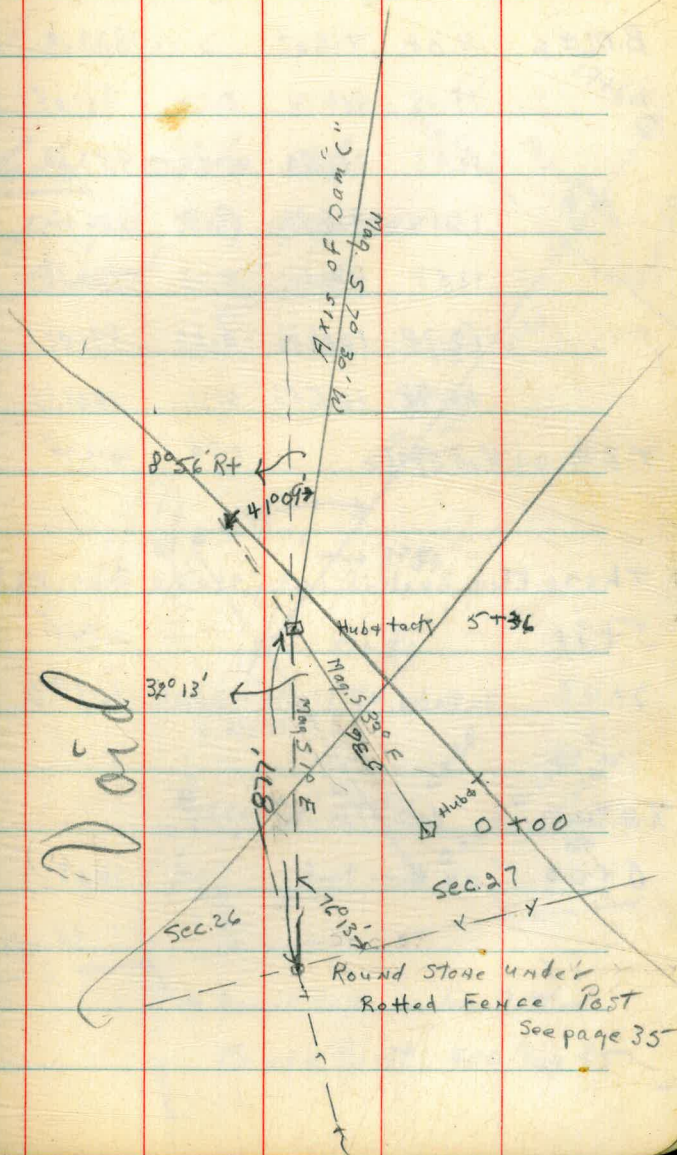 Axis of Dam "C"
Mag. S 7° 30' W
8°56' Rt
41°09'
Hub & tack
5+36
32°13'
Mag. S 33° E
536
Mag S 1° E
877'
Void
Hub &
0+00
Sec. 27
76°13'
Sec. 26
Round Stone under
Rotted Fence Post
See page 35